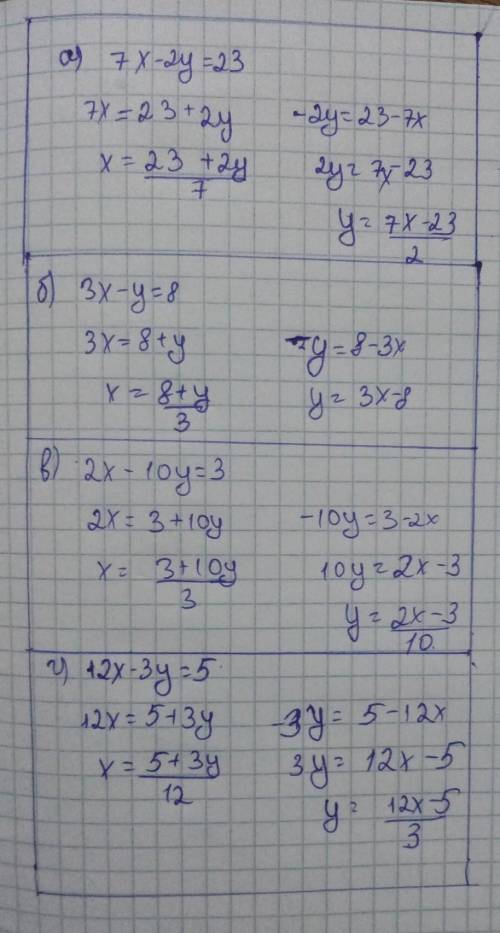 а) 7x-2y=23
7x=23+2y -2y=23-7x
x=23+2y/7 2y=7x-23
y=7x-23/2
б) 3x-y=8
3x=8+y -y=8-3x
x=8+y/3 y=3x-8
в) 2x-10y=3
2x=3+10y -10y=3-2x
x=3+10y/3 10y=2x-3
y=2x-3/10
г) 12x-3y=5
12x=5+3y -3y=5-12x
x=5+3y/12 3y=12x-5
y=12x-5/3